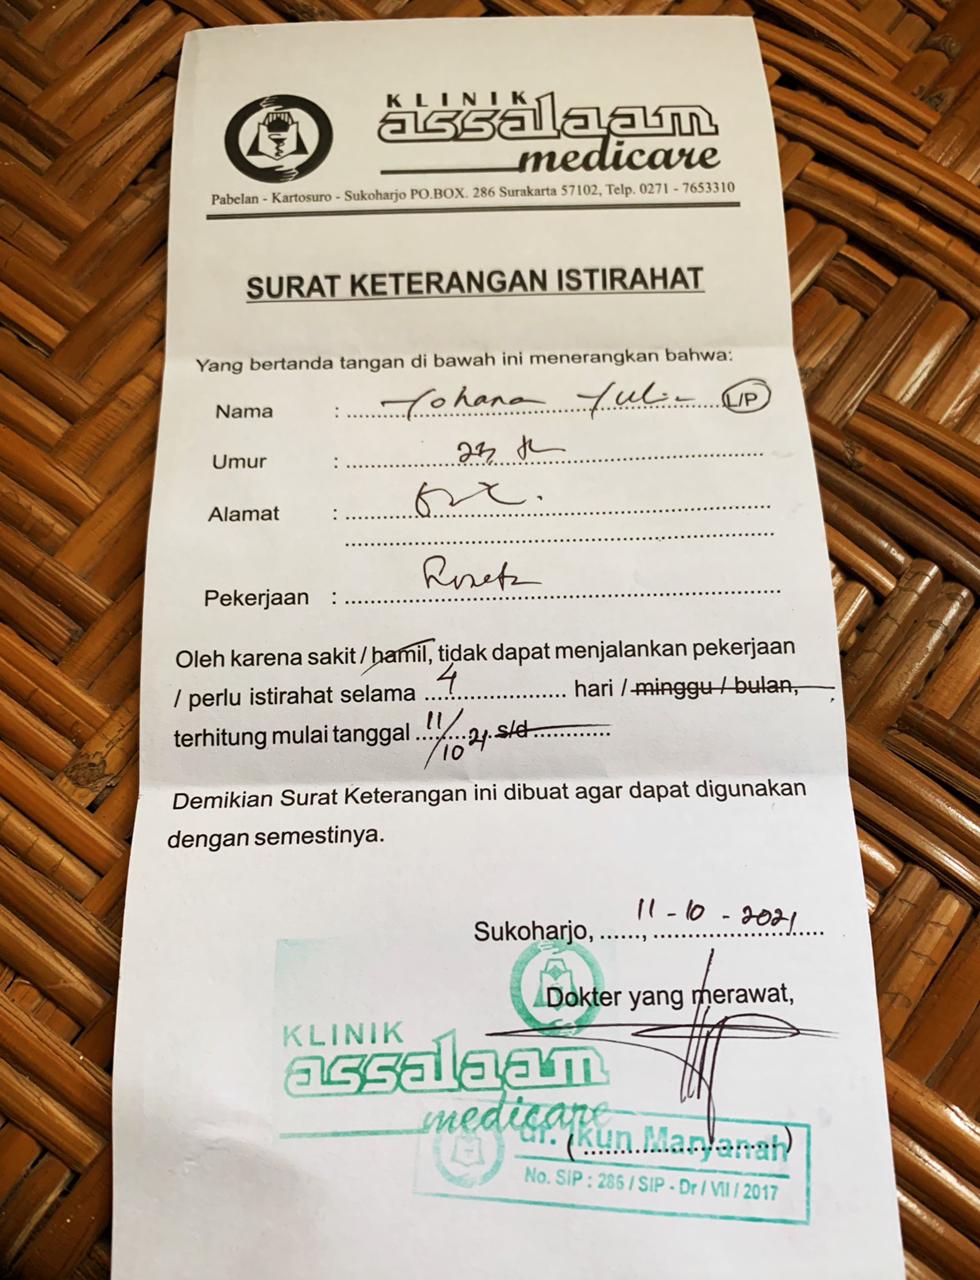 KLINIK
assalaam
medicare
Pabelan - Kartosuro - Sukoharjo PO.BOX. 286 Surakarta 57102, Telp. 0271 - 7653310
SURAT KETERANGAN ISTIRAHAT
Yang bertanda tangan di bawah ini menerangkan bahwa:
Nama : Yohana L/P
Umur : 23
Alamat :
Pekerjaan :
Oleh karena sakit / hamil, tidak dapat menjalankan pekerjaan
/ perlu istirahat selama 4 hari / minggu / bulan,
terhitung mulai tanggal 11/10 21 s/d
Demikian Surat Keterangan ini dibuat agar dapat digunakan
dengan semestinya.
Sukoharjo, 11 - 10 - 2021
Dokter yang merawat,
KLINIK
assalaam
medicare
dr. Ikun Maryanah
No. SIP : 286 / SIP - Dr / VII / 2017